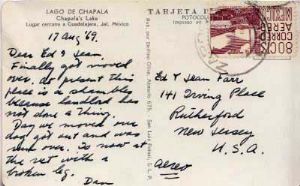 LAGO DE CHAPALA
Chapala's Lake
Lugar cercano a Guadalajara, Jal. México
17 Aug '69.
Dear Ed & Jean
Finally got moved
over. At present this
place is a shambles
because landlord has
not done a thing.
Day we moved, our
dog got out and was
run over. Is now at
the vet with a
broken leg.
Dan
TARJETA
Ed & Jean Farr
141 Irving Place
Rutherford
New Jersey
U.S.A.
Aereo
80 CTS
AEREO
CORREO
MEXICO